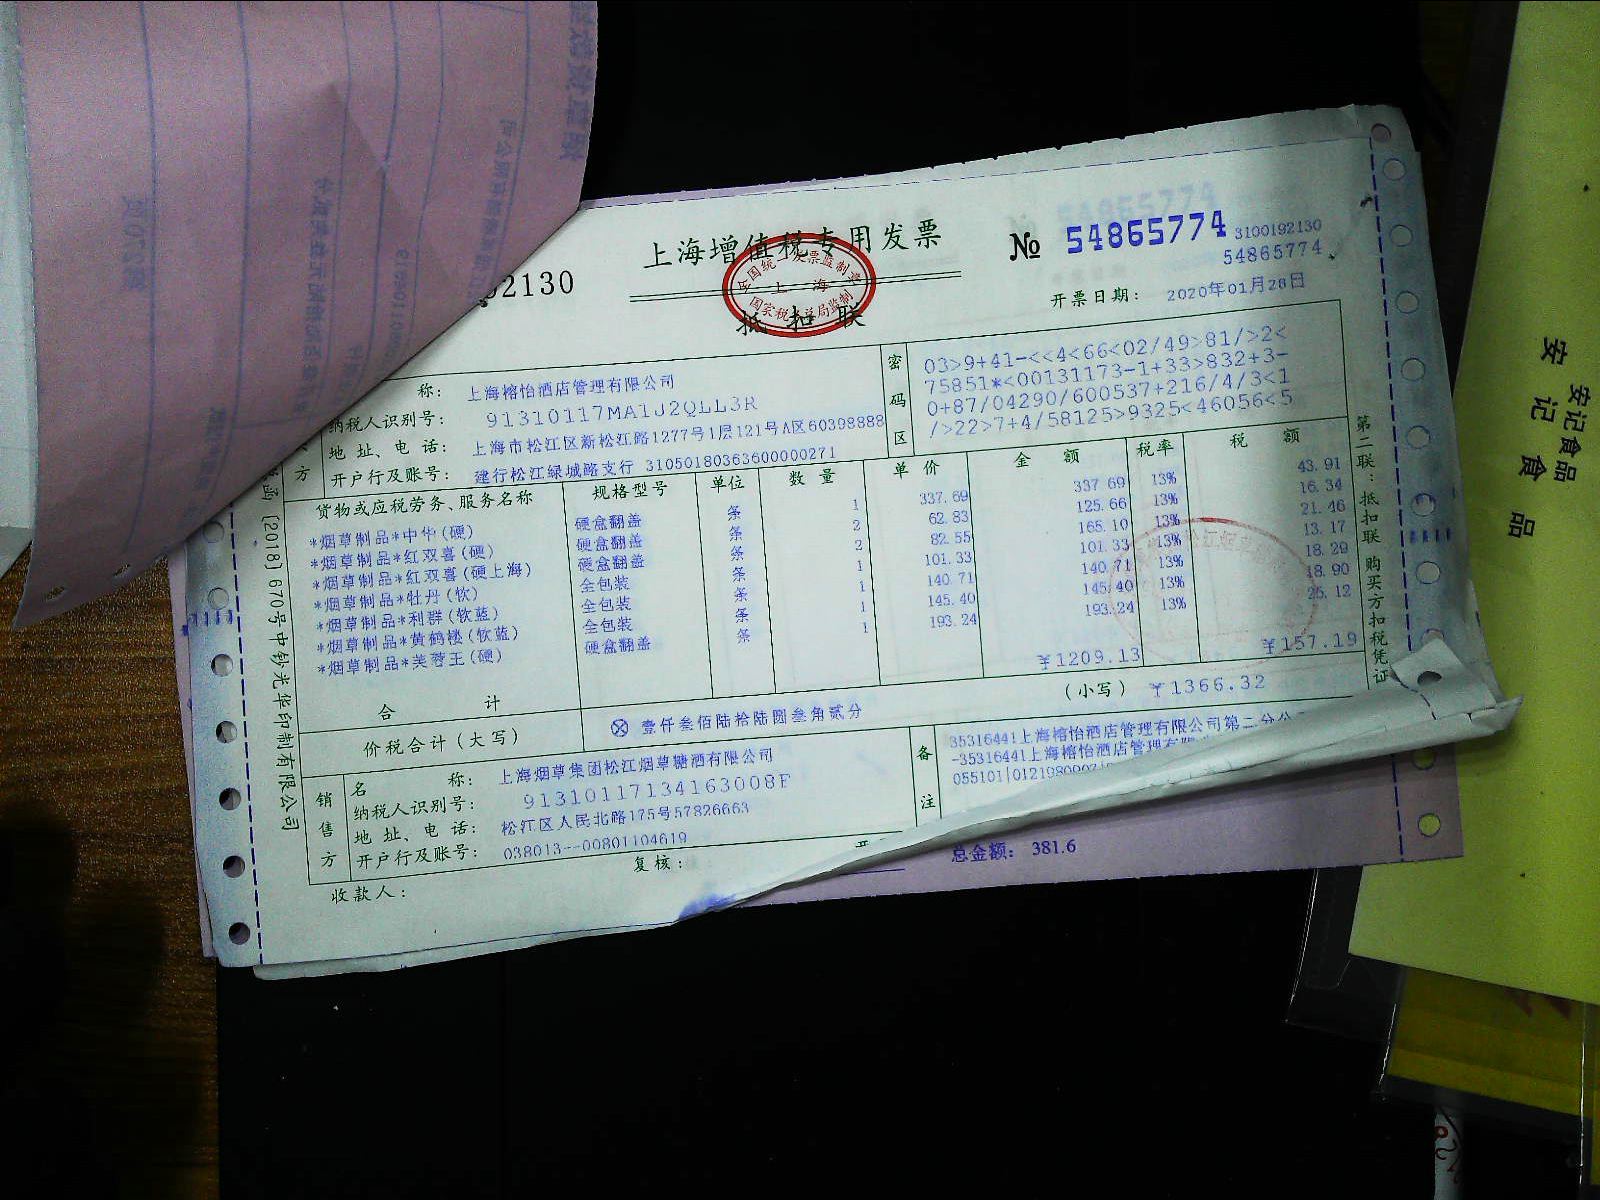 上海增值税专用发票
抵扣联
全国统一发票监制章
上海
国家税务总局监制
2130
№ 54865774
3100192130
54865774
开票日期: 2020年01月28日
称: 上海榕怡酒店管理有限公司
纳税人识别号: 91310117MA1J2QLL3R
地址、电话: 上海市松江区新松江路1277号1层121号A区60398888
开户行及账号: 建行松江绿城路支行 31050180363600000271
方
密码区
03>9+41-<<4<66<02/49>81/>2<
75851*<00131173-1+33>832+3-
0+87/04290/600537+216/4/3<1
/>22>7+4/58125>9325<46056<5
货物或应税劳务、服务名称 规格型号 单位 数量 单价 金额 税率 税额
*烟草制品*中华(硬) 硬盒翻盖 条 1 337.69 337.69 13% 43.91
*烟草制品*红双喜(硬) 硬盒翻盖 条 2 62.83 125.66 13% 16.34
*烟草制品*红双喜(硬上海) 硬盒翻盖 条 2 82.55 165.10 13% 21.46
*烟草制品*牡丹(软) 全包装 条 1 101.33 101.33 13% 13.17
*烟草制品*利群(软蓝) 全包装 条 1 140.71 140.71 13% 18.29
*烟草制品*黄鹤楼(软蓝) 全包装 条 1 145.40 145.40 13% 18.90
*烟草制品*芙蓉王(硬) 硬盒翻盖 条 1 193.24 193.24 13% 25.12
合计 ¥1209.13 ¥157.19
价税合计(大写) ⊗ 壹仟叁佰陆拾陆圆叁角贰分 (小写) ¥1366.32
销售方
名称: 上海烟草集团松江烟草糖酒有限公司
纳税人识别号: 91310117134163008F
地址、电话: 松江区人民北路175号57826663
开户行及账号: 038013--00801104619
备注
35316441上海榕怡酒店管理有限公司第二分公
-35316441上海榕怡酒店管理有限
055101|0121980907
收款人:
复核:
总金额: 381.6
第二联:抵扣联 购买方扣税凭证
[2018] 670号中钞光华印制有限公司
安记食品
安记食品